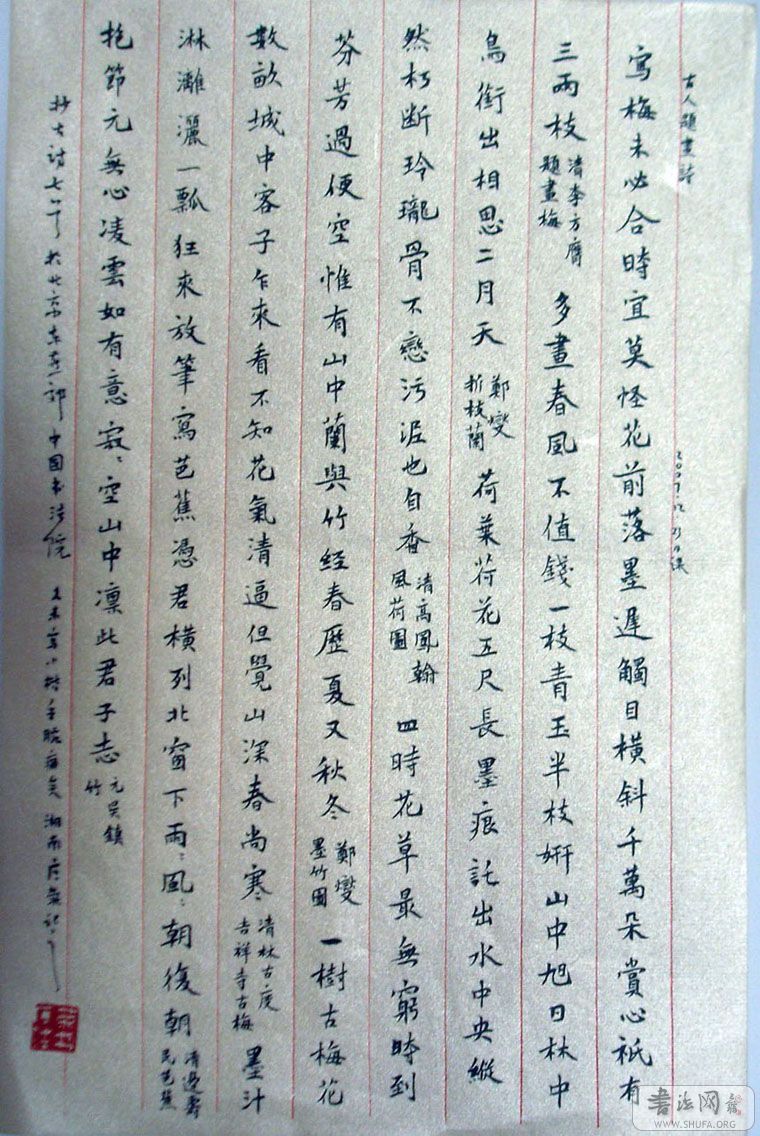 古人題畫詩
寫梅未必合時宜莫怪花前落墨遲觸目橫斜千萬朵賞心祗有
三兩枝 清李方膺題畫梅 多畫春風不值錢一枝青玉半枝妍山中旭日林中
鳥銜出相思二月天 鄭燮折枝蘭 荷葉荷花五尺長墨痕託出水中央縱
然朽斷玲瓏骨不戀污泥也自香 清高鳳翰風荷圖 四時花草最無窮時到
芬芳過便空惟有山中蘭與竹經春歷夏又秋冬 鄭燮墨竹圖 一樹古梅花
數畝城中客子乍來看不知花氣清逼但覺山深春尚寒 清林古度吉祥寺古梅 墨汁
淋灕灑一瓢狂來放筆寫芭蕉憑君橫列北窗下雨〻風〻朝復朝 清邊壽民芭蕉
抱節元無心凌雲如有意寂〻空山中凛此君子志 元吳鎮竹
抄古詩七首於北京 中国书法院
书法网
WWW.SHUFA.ORG